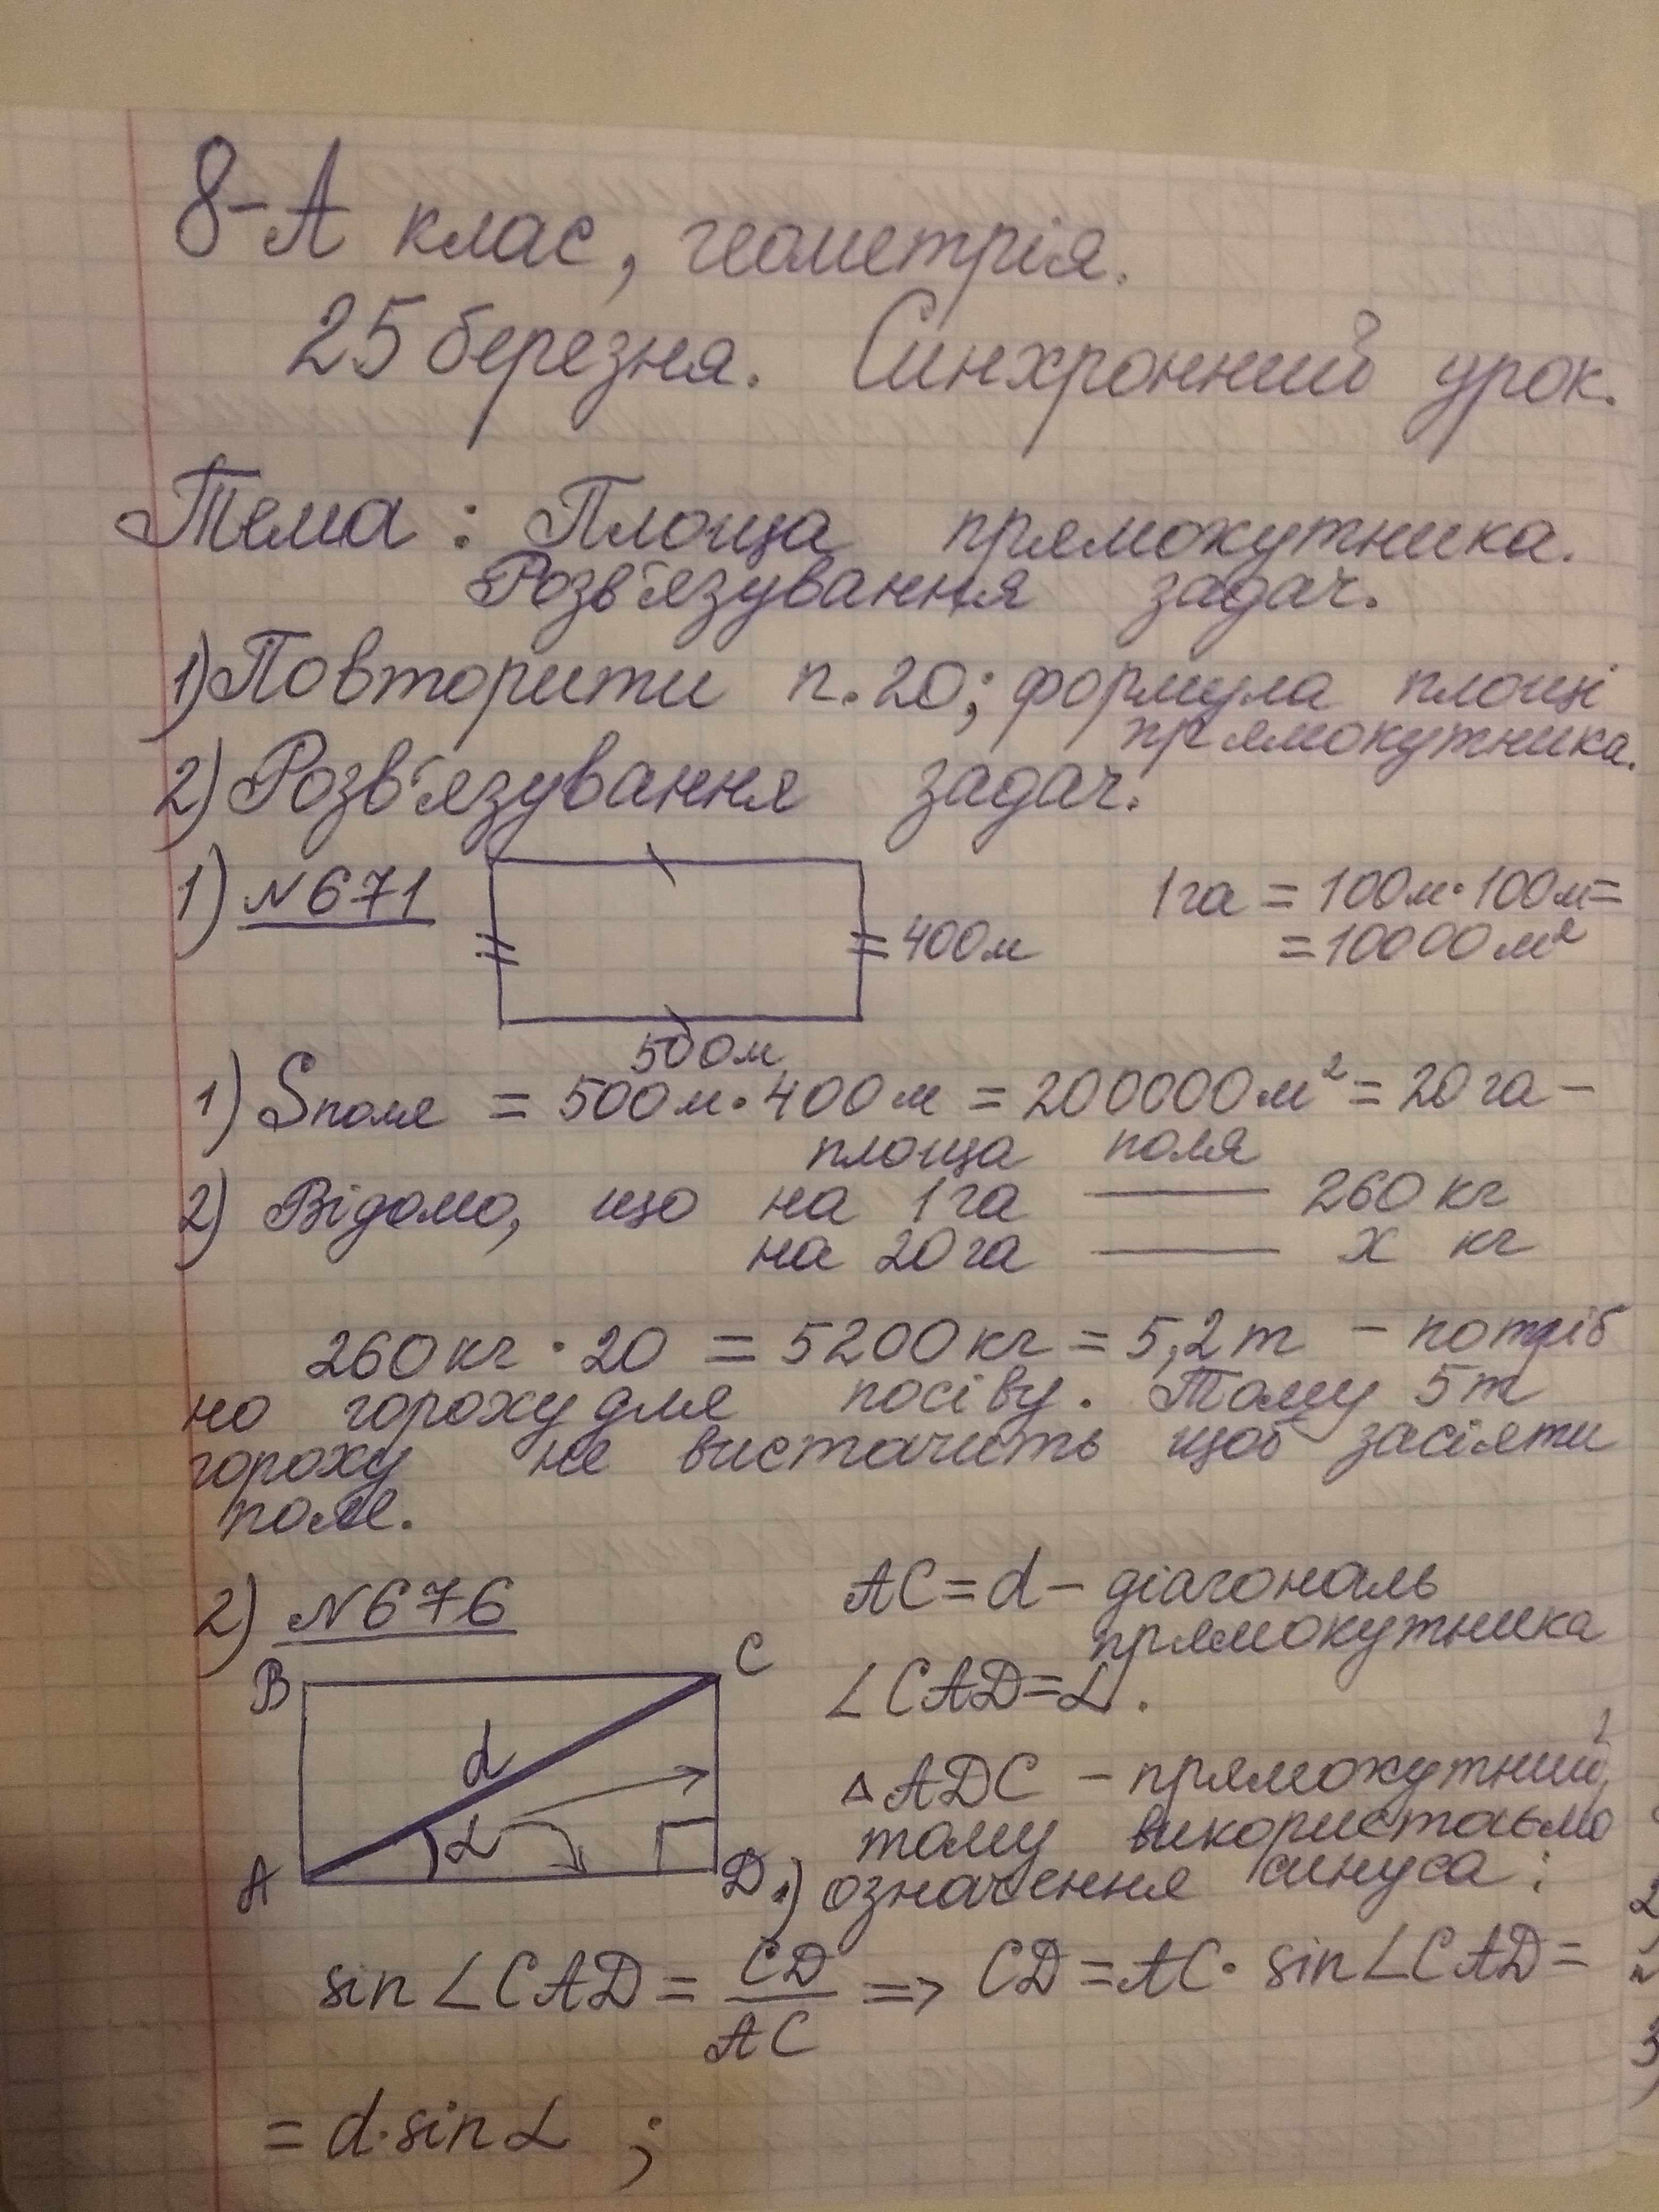 8-А клас, геометрія.
25 березня. Синхронний урок.
Тема: Площа прямокутника.
Розв'язування задач.
1) Повторити п.20; формула площі
прямокутника.
2) Розв'язування задач.
1) №671
1га = 100м·100м=
=10000м²
400м
500м
1) Sполя = 500м·400м = 200000м² = 20га –
площа поля
2) Відомо, що на 1га —— 260 кг
на 20га —— x кг
260кг · 20 = 5200кг = 5,2т – потріб
но гороху для посіву. Тому 5т
гороху не вистачить щоб засіяти
поле.
2) №676
AC = d – діагональ
прямокутника
∠CAD=α.
B
C
d
α
A
D
△ADC – прямокутний,
тому використаємо
1) означення синуса:
sin∠CAD = CD/AC => CD = AC· sin∠CAD =
= d·sinα ;
2
3)